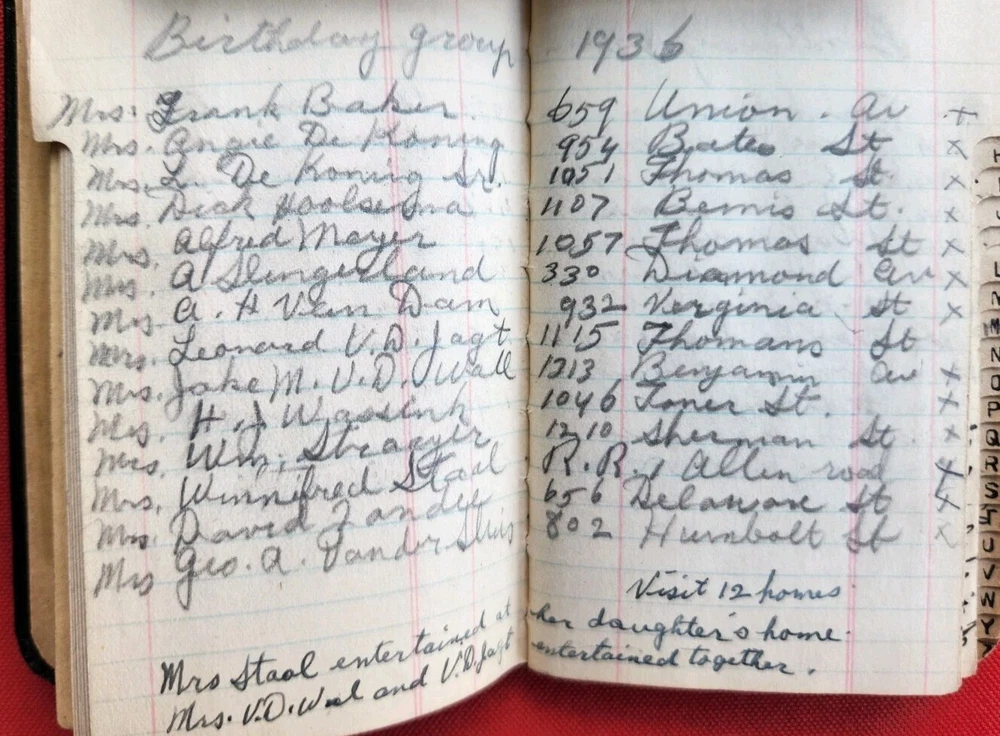 Birthday group 1936
Mrs. Frank Baker. 659 Union. Av x
Mrs. Angie De Koning 954 Bates St x
Mrs. L. De Koning Sr. 1051 Thomas St. x
Mrs. Dick Hoolsema 1107 Bemis St. x
Mrs. Alfred Mayer 1057 Thomas St x
Mrs. A Slingerland 330 Diamond Av x
Mrs. A. H Van Dam 932 Verginia St x
Mrs. Leonard V.D. Jagt 1115 Thomans St
Mrs. Jake M. V.D. Wall 1213 Benjamin Av x
Mrs. H. J Wassink 1046 Toner St. x
Mrs. Wm. Straayer 1210 Sherman St. x
Mrs. Winnifred Staal R.R. 1 Allen road x
Mrs. David Zandee 656 Delaware St x
Mrs Geo. A. Vander Sluis 802 Humbolt St x
Visit 12 homes.
Mrs Staal entertained at her daughter's home.
Mrs. V.D. Wal and V.D. Jagt entertained together.
L
M
N
O
P
Q
R
S
T
U
V
W
Y